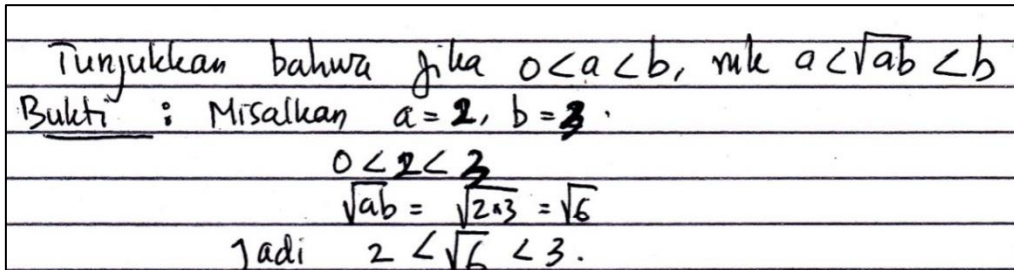 Tunjukkan bahwa jika 0<a<b, mk a<√ab<b
Bukti : Misalkan a = 2, b = 3.
0 < 2 < 3
√ab = √2×3 = √6
Jadi 2 < √6 < 3.